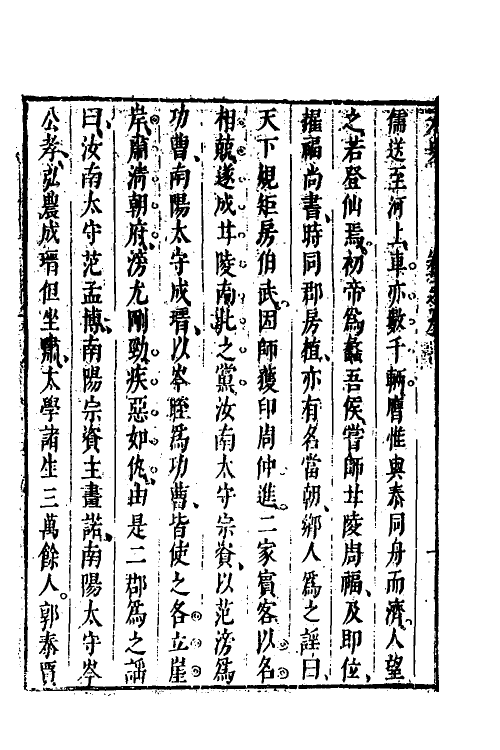 儒送至河上車亦數千輛膺惟與泰同舟而濟人望
之若登仙焉初帝爲蠡吾侯嘗師甘陵周福及即位
擢福尚書時同郡房植亦有名當朝鄉人爲之謡曰
天下規矩房伯武因師獲印周仲進二家賓客以名
相競遂成甘陵南北之黨汝南太守宗資以范滂爲
功曹南陽太守成瑨以岑晊爲功曹皆使之各立崖
岸肅清朝府滂尤剛勁疾惡如仇由是二郡爲之謡
曰汝南太守范孟博南陽宗資主畫諾南陽太守岑
公孝弘農成瑨但坐嘯太學諸生三萬餘人郭泰賈